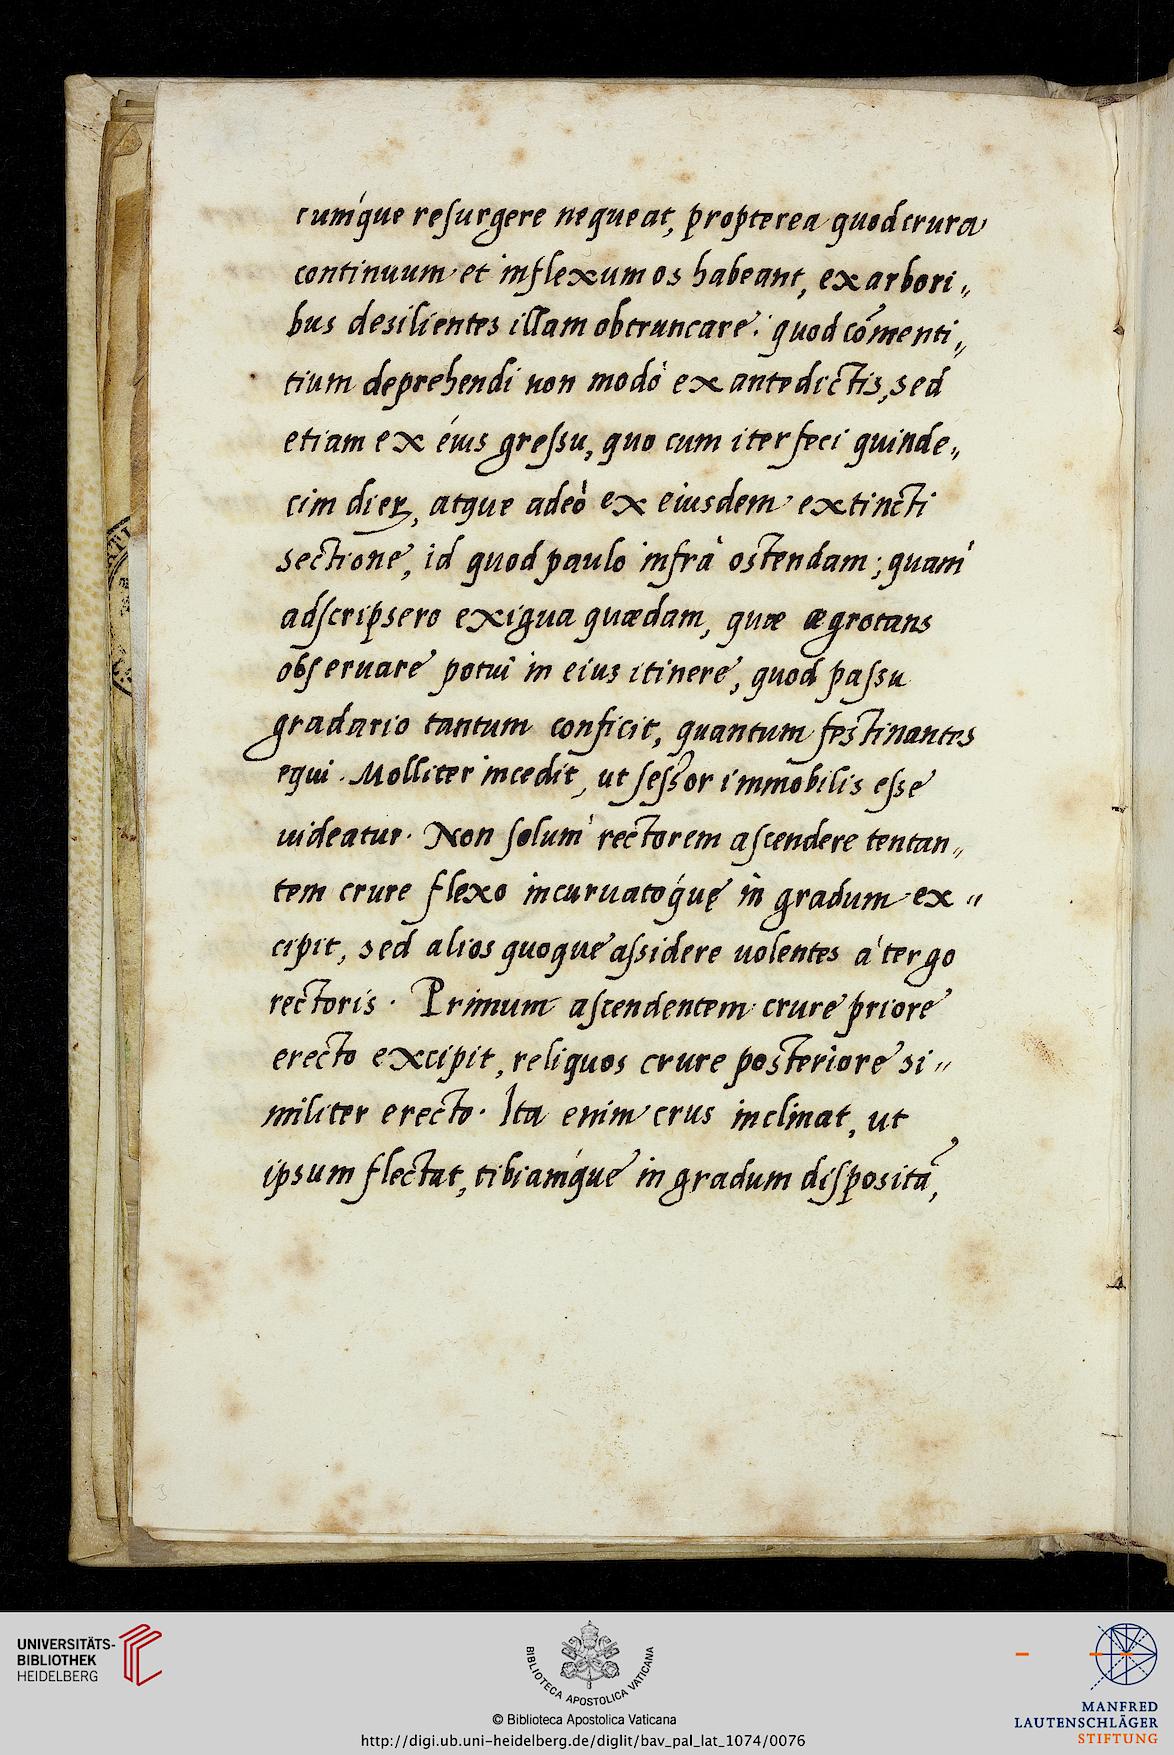 cumq́ue resurgere nequeat, propterea quod crura
continuum et inflexum os habeant, ex arbori„
bus desilientes illam obtruncare: quod cōmenti„
tium deprehendi non modò ex antedictis, sed
etiam ex éius gressu, quo cum iter feci quinde„
cim dieꝝ, atque adeò ex eiusdem extincti
sectione, id quod paulo infrà ostendam; quam
adscripsero exigua quædam, quæ ægrotans
observare potui in eius itinere, quod passu
gradario tantum conficit, quantum festinantes
equi. Molliter incedit, ut sessor immobilis esse
uideatur. Non solum rectorem ascendere tentan„
tem crure flexo incuruatoq́ue in gradum ex„
cipit, sed alios quoque assidere uolentes à tergo
rectoris. Primum ascendentem crure priore
erecto excipit, reliquos crure posteriore si„
militer erecto. Ita enim crus inclinat, ut
ipsum flectat, tibiamq́ue in gradum dispositā,
UNIVERSITÄTS-
BIBLIOTHEK
HEIDELBERG
BIBLIOTECA APOSTOLICA VATICANA
© Biblioteca Apostolica Vaticana
http://digi.ub.uni-heidelberg.de/diglit/bav_pal_lat_1074/0076
MANFRED
LAUTENSCHLÄGER
STIFTUNG